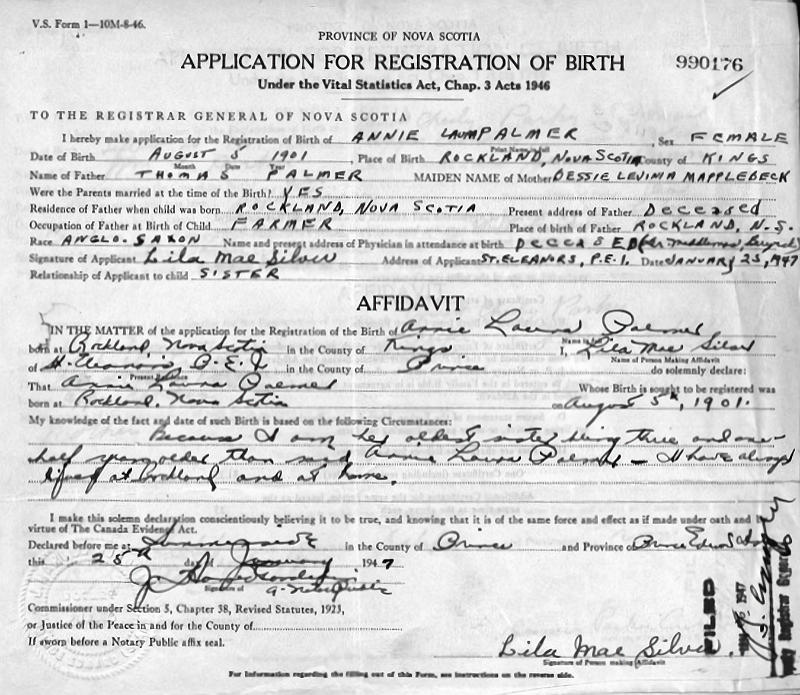 V.S. Form 1—10M-8-46.
PROVINCE OF NOVA SCOTIA
APPLICATION FOR REGISTRATION OF BIRTH
990176
Under the Vital Statistics Act, Chap. 3 Acts 1946
TO THE REGISTRAR GENERAL OF NOVA SCOTIA
I hereby make application for the Registration of Birth of ANNIE LAURA PALMER, Sex FEMALE
Print Name in full
Date of Birth AUGUST 5 1901, Place of Birth ROCKLAND, NOVA SCOTIA County of KINGS
Month Date Year
Name of Father THOMAS PALMER MAIDEN NAME of Mother BESSIE LEVINIA MAPPLEBECK
Were the Parents married at the time of the Birth? YES
Residence of Father when child was born ROCKLAND, NOVA SCOTIA Present address of Father DECEASED
Occupation of Father at Birth of Child FARMER Place of birth of Father ROCKLAND, N.S.
Race ANGLO-SAXON Name and present address of Physician in attendance at birth DECEASED
Signature of Applicant Lila Mae Silver Address of Applicant ST. ELEANORS, P.E.I. Date JANUARY 25, 1947
Relationship of Applicant to child SISTER
AFFIDAVIT
IN THE MATTER of the application for the Registration of the Birth of Annie Laura Palmer
Name in Full
born at Rockland, Nova Scotia in the County of Kings I, Lila Mae Silver
Name of Person Making Affidavit
of St. Eleanors P.E.I. in the County of Prince do solemnly declare:
Present Residence
That Annie Laura Palmer Whose Birth is sought to be registered was
born at Rockland, Nova Scotia on August 5th, 1901.
My knowledge of the fact and date of such Birth is based on the following Circumstances:
Because I am her oldest sister being three and one-
half years older than said Annie Laura Palmer — I have always
lived at Rockland and at home.
I make this solemn declaration conscientiously believing it to be true, and knowing that it is of the same force and effect as if made under oath and in
virtue of The Canada Evidence Act.
Declared before me at Summerside in the County of Prince and Province of Prince Edward Island
this 25th day of January 1947
Signature of
a Notary Public
Commissioner under Section 5, Chapter 38, Revised Statutes, 1923,
or Justice of the Peace in and for the County of
If sworn before a Notary Public affix seal.
Lila Mae Silver
Signature of Person making Affidavit
FILED
1947
Deputy Registrar General
For Information regarding the filling out of this Form, see instructions on the reverse side.